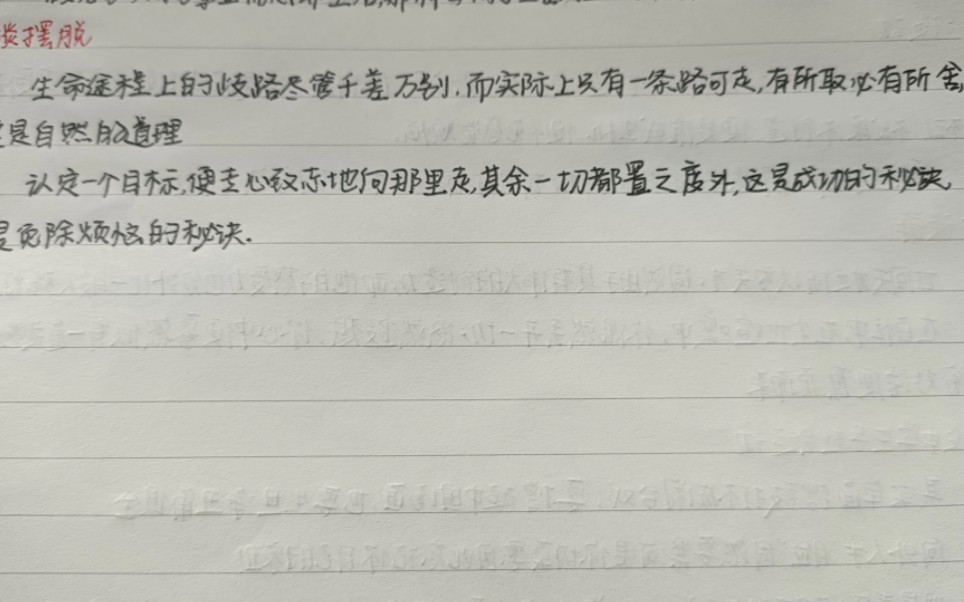 谈摆脱
生命途程上的歧路尽管千差万别，而实际上只有一条路可走，有所取必有所舍，
这是自然的道理
认定一个目标，便专心致志地向那里走，其余一切都置之度外，这是成功的秘诀，
是免除烦恼的秘诀.